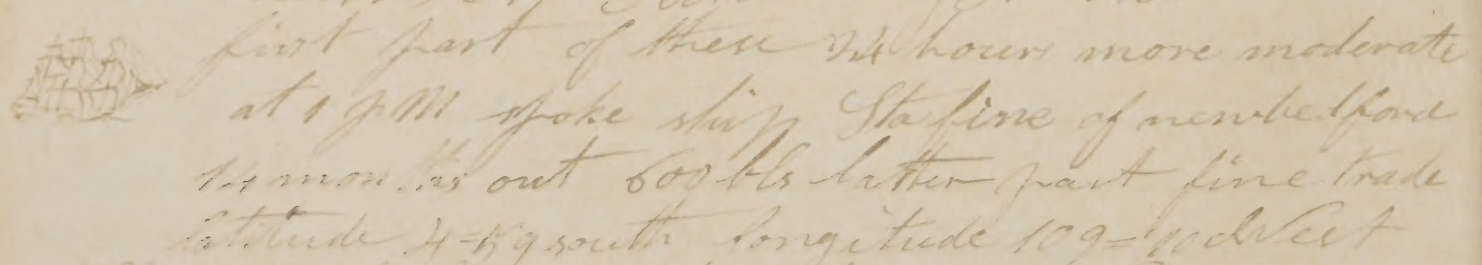 first part of these 24 hours more moderate
at 1 P M spoke ship Stafine of newbedford
14 months out 600 bls latter part fine trade
latitude 4=59 south longitude 109=10 West